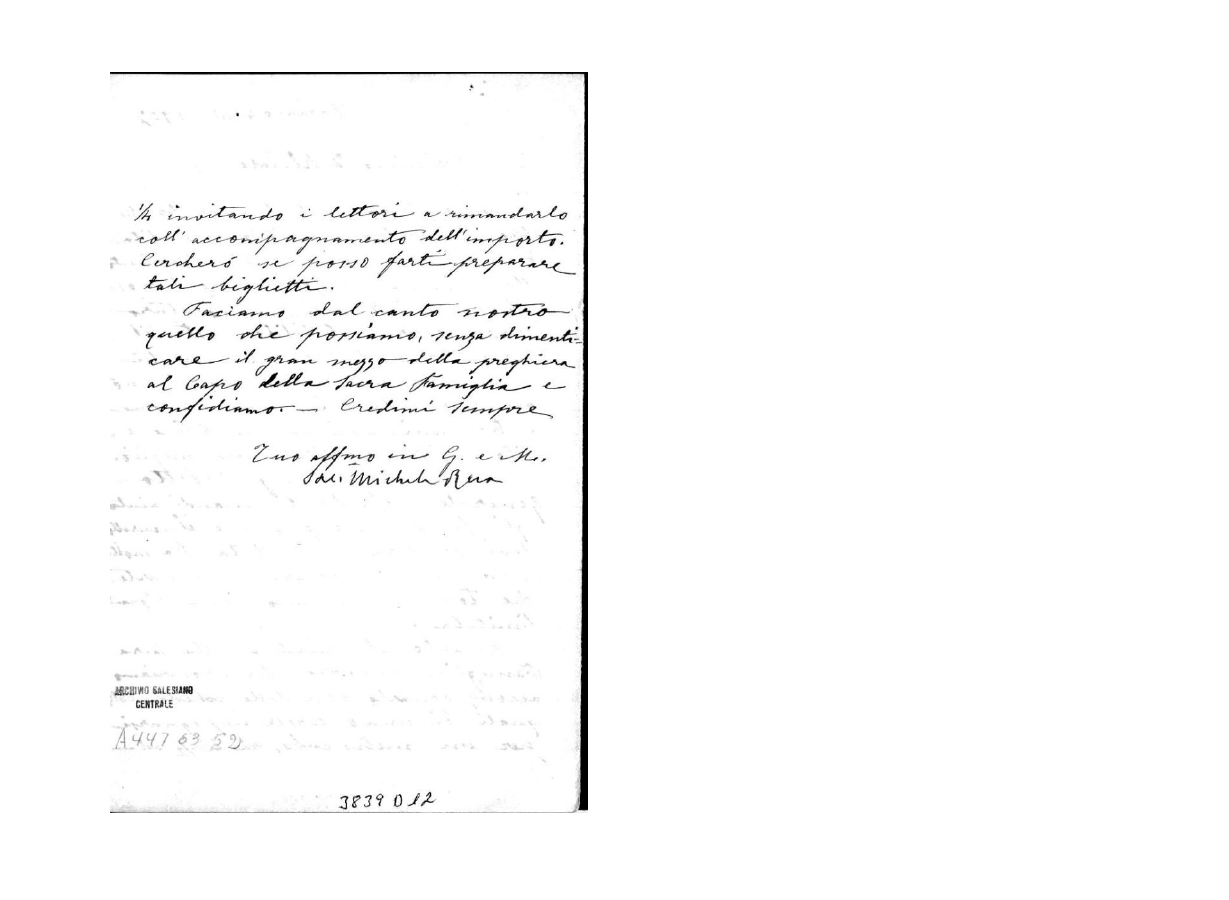 ¼ invitando i lettori a rimandarlo
coll' accompagnamento dell'importo.
Cercherò se posso farti preparare
tali biglietti.
Faciamo dal canto nostro
quello che possiamo, senza dimenti-
care il gran mezzo della preghiera
al Capo della Sacra Famiglia e
confidiamo. — Credimi sempre
Tuo affmo in G. e M.
Sac. Michele Rua
ARCHIVIO SALESIANO
CENTRALE
A447 63 52
3839 D 12